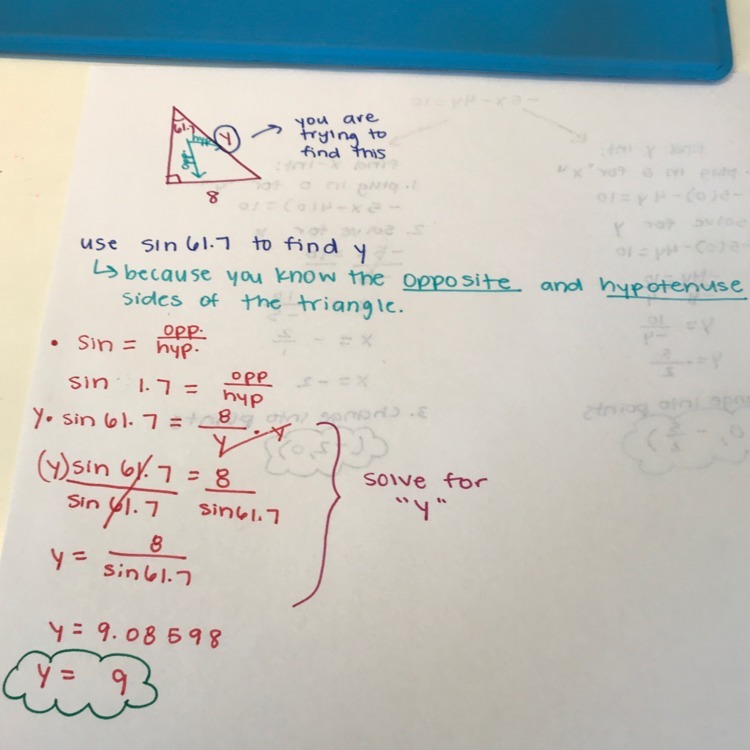 61.7
hyp
y
8
you are
trying to
find this
use sin 61.7 to find y
↳ because you know the opposite and hypotenuse
sides of the triangle.
• sin = opp. / hyp.
sin 1.7 = opp / hyp
y • sin 61.7 = 8 / y • y
(y) sin 61.7 / sin 61.7 = 8 / sin 61.7
y = 8 / sin 61.7
solve for
"y"
y = 9.08598
y = 9